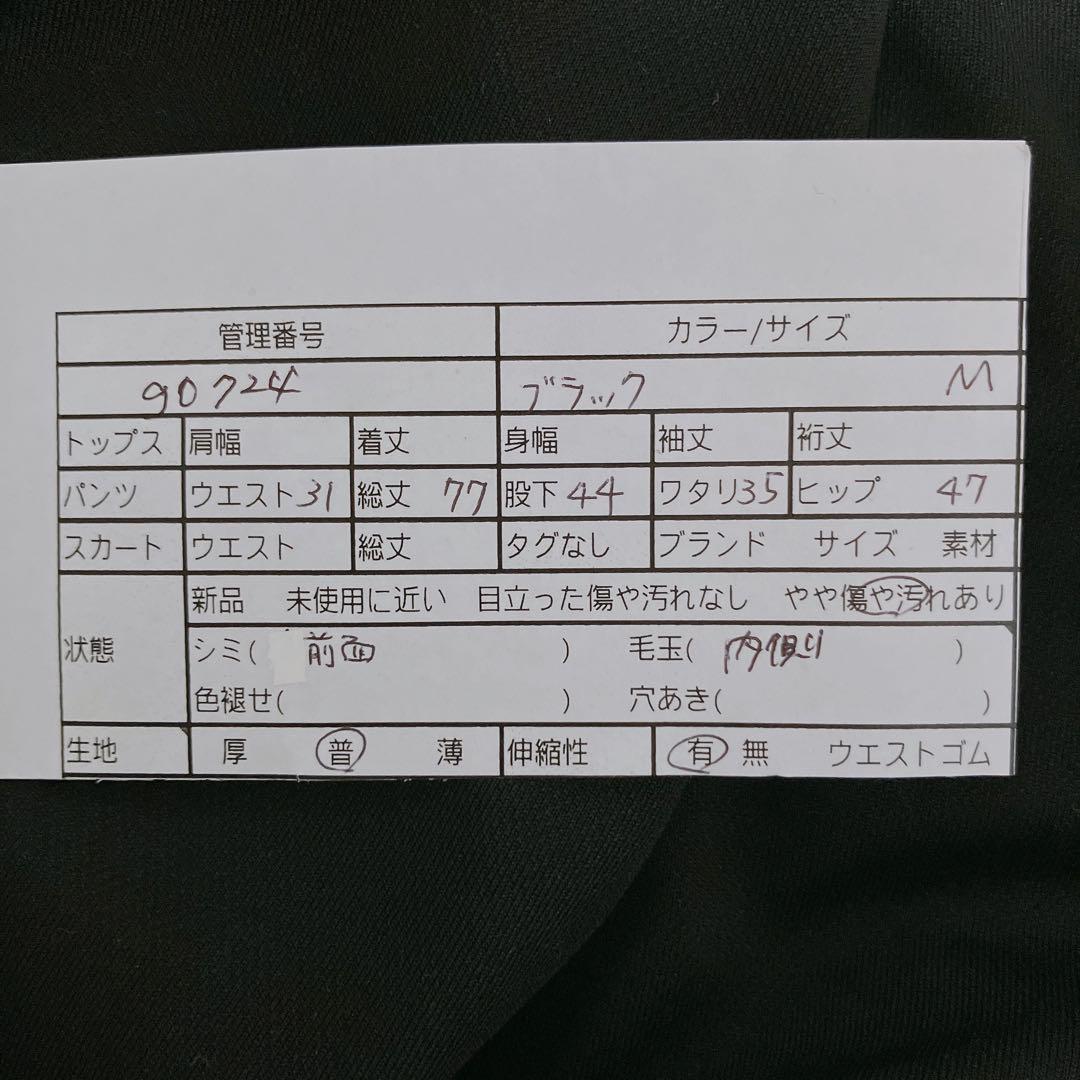 管理番号 カラー/サイズ
90724 ブラック M
トップス 肩幅 着丈 身幅 袖丈 裄丈
パンツ ウエスト31 総丈 77 股下44 ワタリ35 ヒップ 47
スカート ウエスト 総丈 タグなし ブランド サイズ 素材
状態 新品 未使用に近い 目立った傷や汚れなし やや傷や汚れあり
シミ( 前面 ) 毛玉( 内側 )
色褪せ( ) 穴あき( )
生地 厚 普 薄 伸縮性 有 無 ウエストゴム